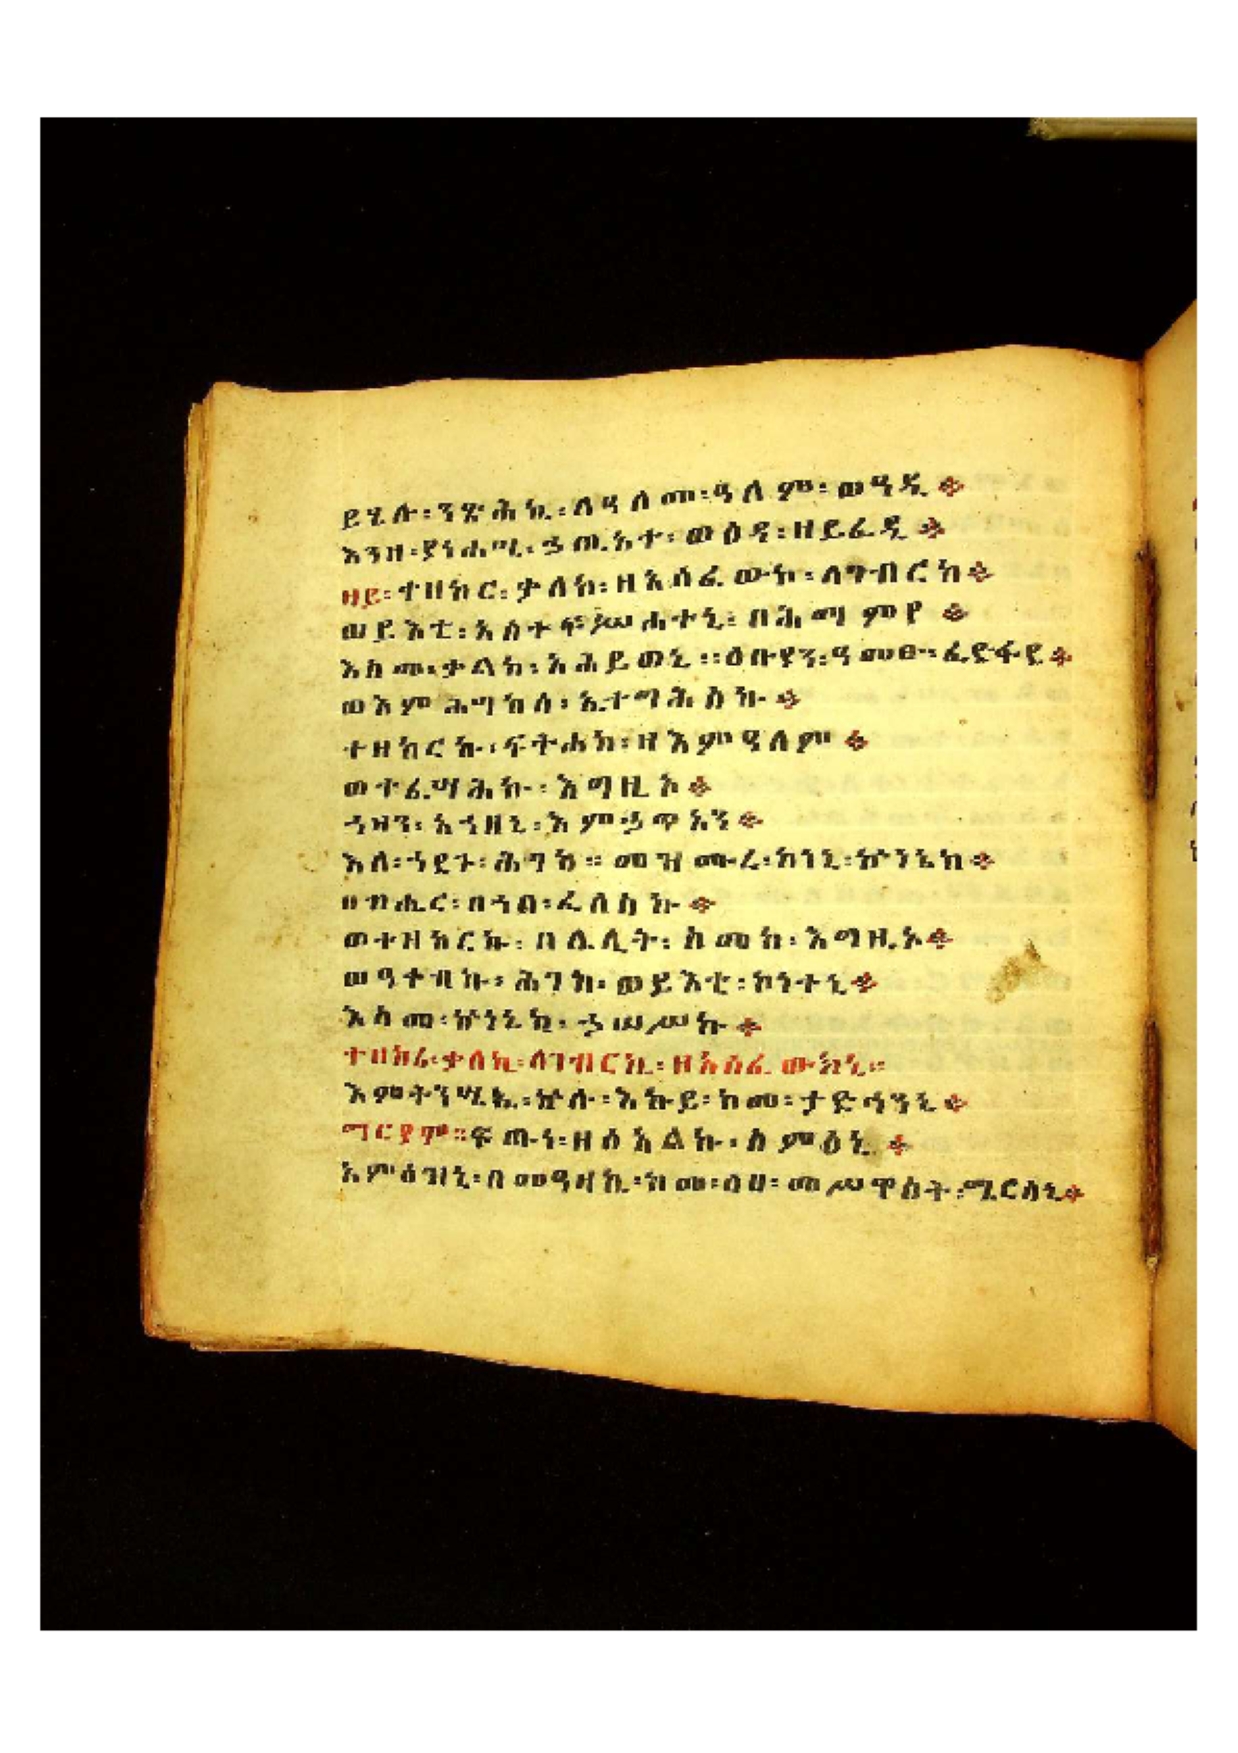 ይሄሉ፡ንጽሕኪ፡ለዓለመ፡ዓለም፡ወዓዲ፨
እንዘ፡ያነሐሢ፡ኃጢአተ፡ወዕዳ፡ዘይፈዲ፨
ዘይ፡ተዘከር፡ቃለከ፡ዘአሰፈውከ፡ለገብርከ፨
ወይእቲ፡አስተፍሥሐተኒ፡በሕማምየ፨
እስመ፡ቃልከ፡አሕይወኒ።ዕቡያን፡ዓመፁ፡ፈድፋደ፨
ወእምሕግከሰ፡ኢተግሕስኩ፨
ተዘከርኩ፡ፍትሐከ፡ዘእምዓለም፨
ወተፈሣሕኩ፡እግዚኦ፨
ኀዘን፡አኀዘኒ፡እምኃጥአን፨
እለ፡ኀደጉ፡ሕግከ።መዝሙረ፡ኮነኒ፡ኵነኔከ፨
በብሔር፡በኀበ፡ፈለስኩ፨
ወተዘከርኩ፡በሌሊት፡ስመከ፡እግዚኦ፨
ወዓቀብኩ፡ሕገከ፡ወይእቲ፡ኮነተኒ፨
እስመ፡ኵነኔከ፡ኃሠሥኩ፨
ተዘከሪ፡ቃለኪ፡ለገብርኪ፡ዘአሰፈውክኒ።
እምትንሢኢ፡ኵሉ፡እኩይ፡ከመ፡ታድኅንኒ፨
ማርያም።ፍጡነ፡ዘሰአልኩ፡ስምዕኒ፨
አምዕዝኒ፡በመዓዛኪ፡ከመ፡ሰሀ፡መሥዋዕት፡ሚርሰኒ፨